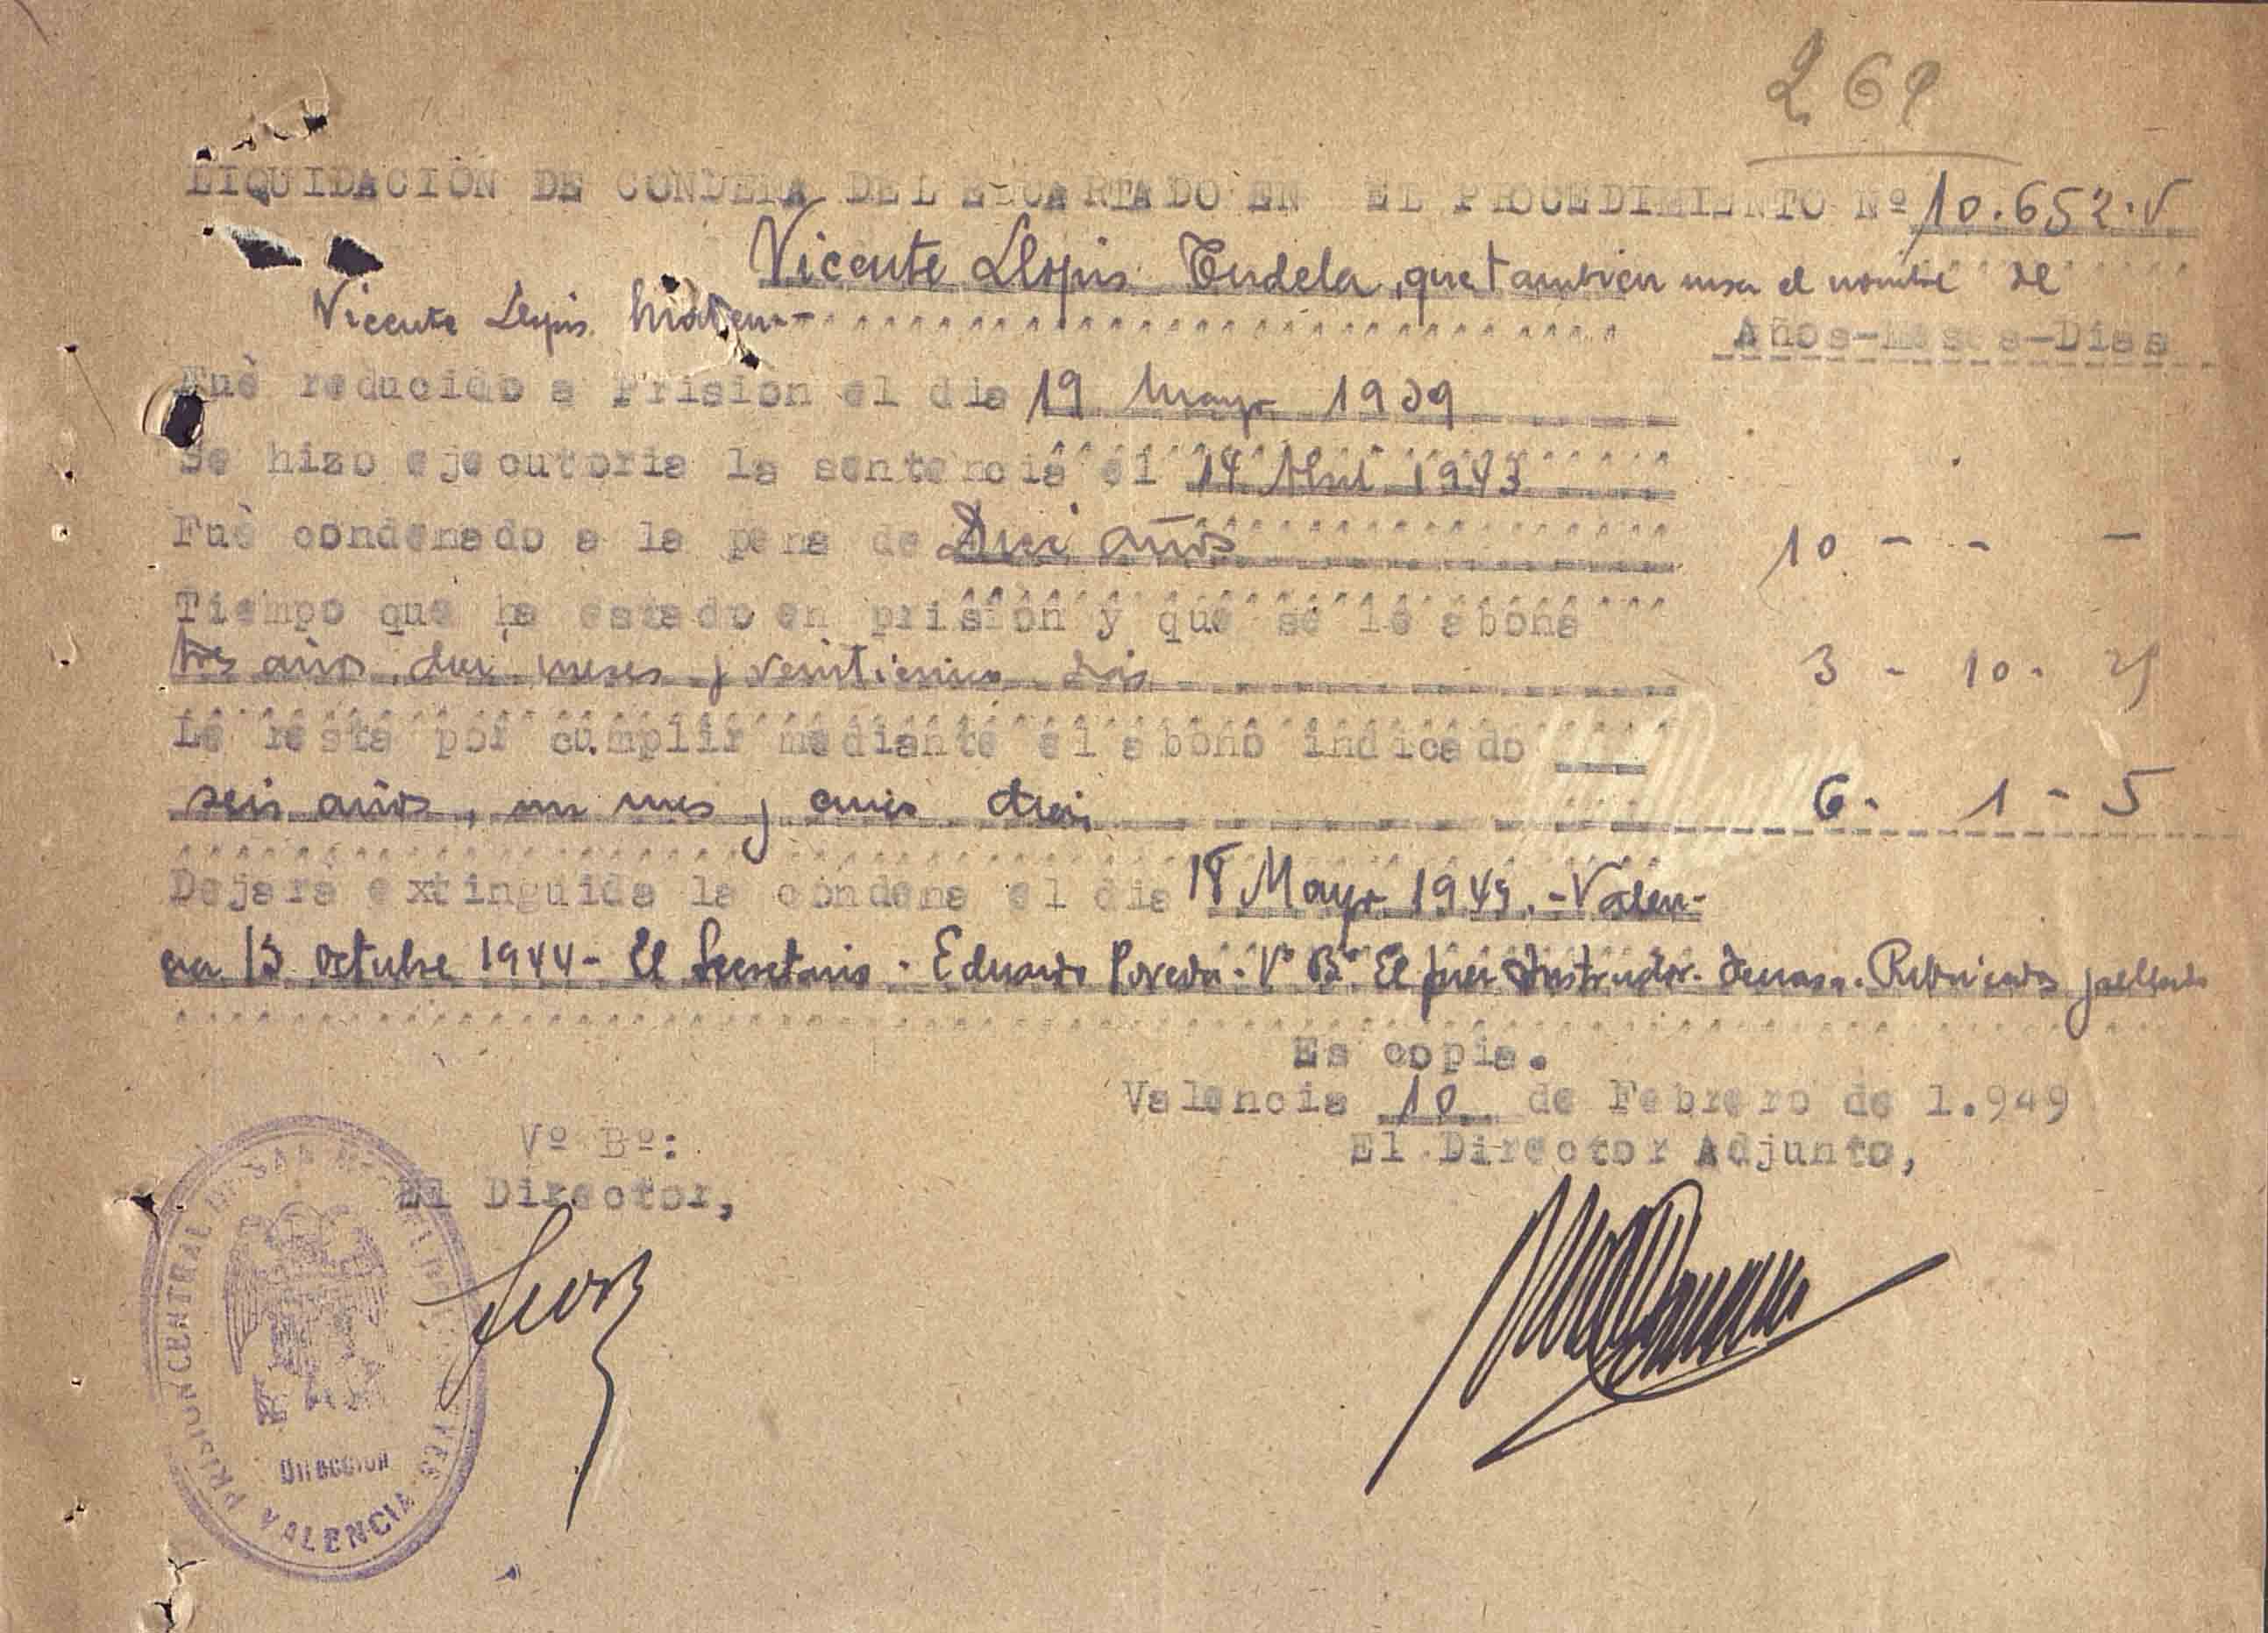 269
LIQUIDACIÓN DE CONDENA DEL ENCARTADO EN EL PROCEDIMIENTO Nº 10.652.V
Vicente Llopis Tudela, que tambien usa el nombre de
Vicente Llopis
Años-Meses-Dias
Fuè reducido a Prisiòn el dia 19 Mayo 1939
Se hizo ejecutoria la sentencia el 14 Abril 1943
Fuè condenado a la pena de Diez años 10 - - -
Tiempo que ha estado en prisiòn y que se le abona
tres años, diez meses y veinticinco dias 3 - 10 - 25
Le resta por cumplir mediante el abono indicado
seis años, un mes y cinco dias 6 - 1 - 5
Dejarà extinguida la condena el dia 18 Mayo 1949.-Valen-
cia 13 Octubre 1944- El Secretario - Eduardo Poveda - Vº Bº El Juez Instructor. Rubricados y sellado
Es copia.
Valencia 10 de Febrero de 1.949
El Director Adjunto,
Vº Bº:
El Director,
PRISION CENTRAL DE SAN MIGUEL DE LOS REYES
DIRECCION
VALENCIA